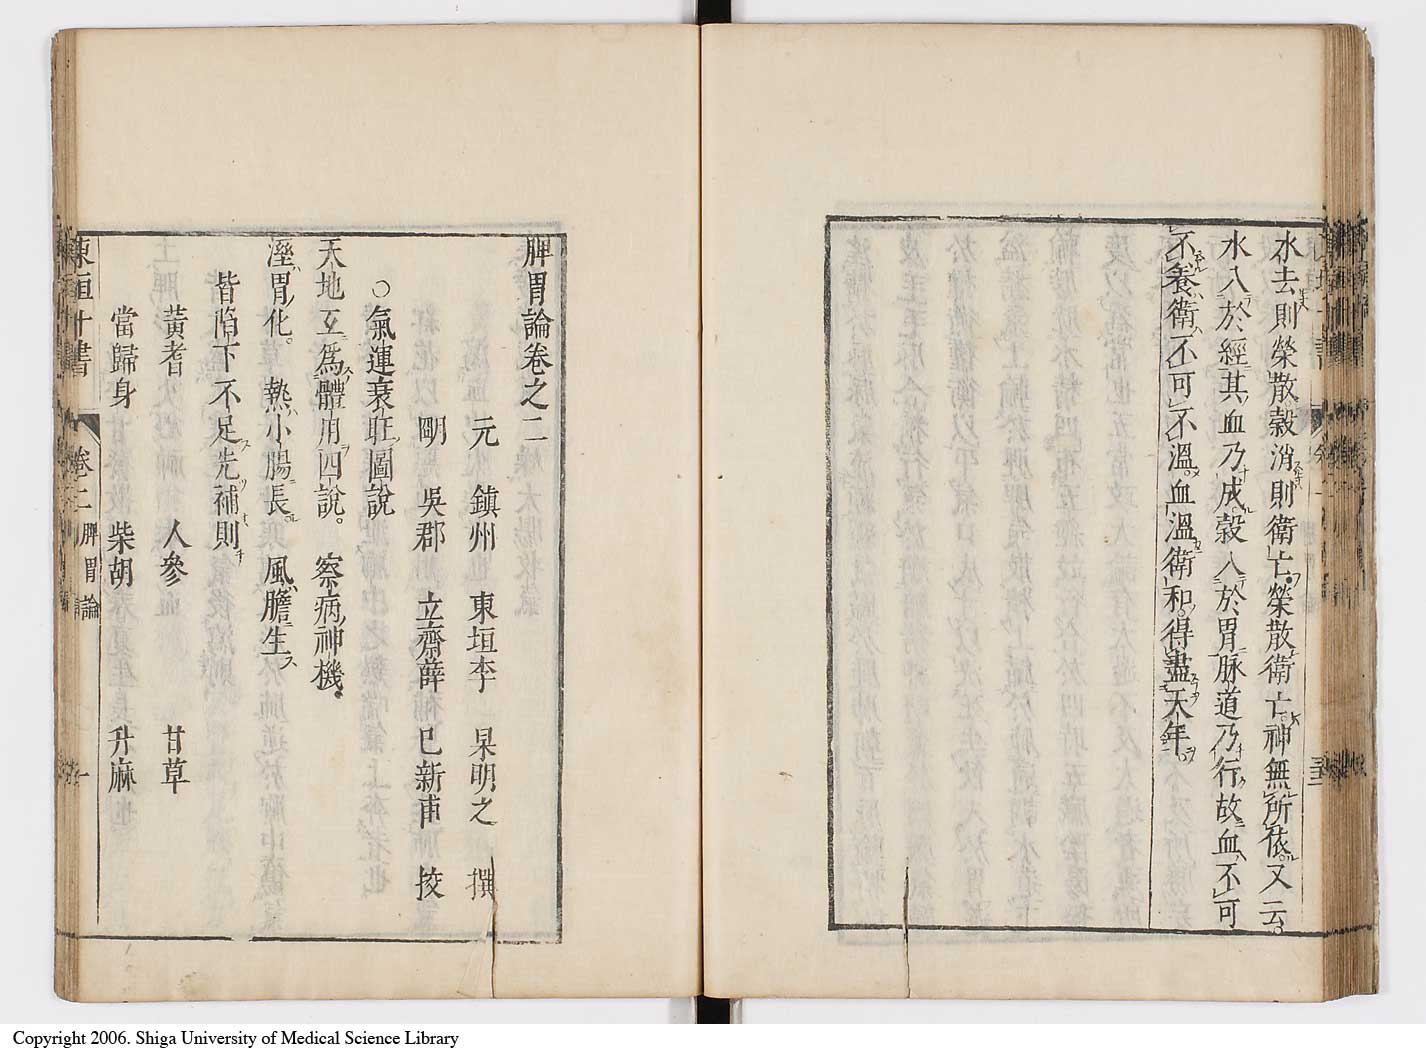 水去則榮散穀消則衛亡榮散衛亡神無所依又云
水入於經其血乃成穀入於胃脉道乃行故血不可
不養衛不可不溫血溫衛和得盡天年
脾胃論卷之二
元 鎮州 東垣李 杲明之 撰
明 吳郡 立齋薛 和已新甫 挍
○氣運衰旺圖說
天地互爲體用四說。 察病神機。
溼胃化。 熱小腸長。 風膽生
皆陷下不足先補則
黃耆 人參 甘草
當歸身 柴胡 升麻
東垣十書 卷二 脾胃論 一
Copyright 2006. Shiga University of Medical Science Library